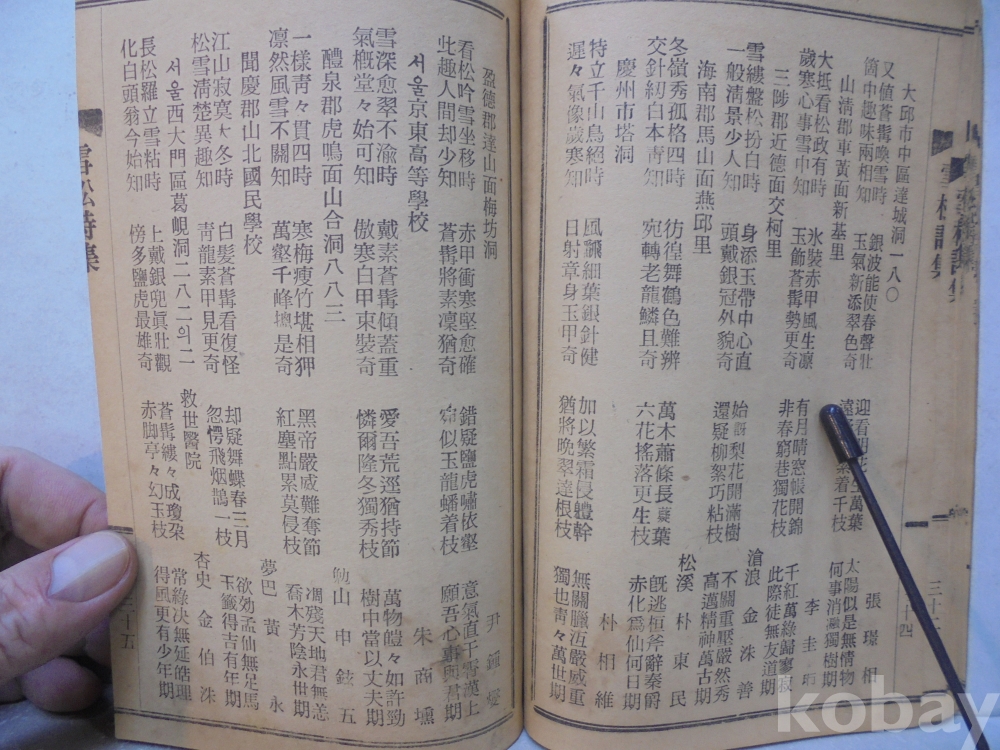 雪松詩集
三十四
大邱市中區達城洞一八〇
張璟相
又値蒼髯喚雪時
箇中趣味兩相知
銀波能使春聲壯
玉氣新添翠色奇
萬葉
着千枝
太陽似是無情物
何事消瀜獨樹期
山淸郡車黃面新基里
李圭
大抵看松政有時
歲寒心事雪中知
氷裝赤甲風生凛
玉飾蒼髯勢更奇
有月晴窓帳開錦
非春窮巷獨花枝
千紅萬綠歸寥寂
此際徒無友道期
三陟郡近德面交柯里
滄浪 金洙善
雪縷盤松扮白時
一般淸景少人知
身添玉帶中心直
頭戴銀冠外貌奇
始訝梨花開滿樹
還疑柳絮巧粘枝
不關重壓嚴然秀
高邁精神萬古期
海南郡馬山面燕邱里
松溪 朴東民
冬嶺秀孤格四時
交針紉白本靑知
彷徨舞鶴色難辨
宛轉老龍鱗且奇
萬木蕭條長葉
六花搖落更生枝
旣逃桓斧辭秦爵
赤化爲仙何日期
慶州市塔洞
朴相維
特立千山鳥絕時
遲々氣像歲寒知
風飜細葉銀針健
日射章身玉甲奇
加以繁霜侵軆幹
猶將晩翠達根枝
無關臘沍嚴威重
獨也靑々萬世期
雪松詩集
三十五
盈德郡達山面梅坊洞
尹鍾燮
看松吟雪坐移時
此趣人間却少知
赤甲衝寒堅愈確
蒼髯將素凜猶奇
錯疑鹽虎嘯依壑
宛似玉龍蟠着枝
意氣直干霄漢上
願吾心事與君期
서울京東高等學校
朱商壎
雪深愈翠不渝時
氣槪堂々始可知
戴素蒼髯傾蓋重
傲寒白甲束裝奇
愛吾荒逕猶持節
憐爾隆冬獨秀枝
萬物皚々如許勁
樹中當以丈夫期
醴泉郡虎鳴面山合洞八八三
勉山 申鉉五
一樣靑々貫四時
凛然風雪不關知
寒梅瘦竹堪相狎
萬壑千峰摠是奇
黑帝嚴威難奪節
紅塵點累莫侵枝
凋殘天地君無恙
喬木芳陰永世期
聞慶郡山北國民學校
夢巴 黃永
江山寂寞大冬時
松雪淸楚異趣知
白髮蒼髯看復怪
靑龍素甲見更奇
却疑舞蝶春三月
忽愕飛烟鵲一枝
欲効孟仙無足馬
玉籤得吉有年期
서울西大門區葛峴洞二八二의二
救世醫院
杏史 金伯洙
長松羅立雪粘時
化白頭翁今始知
上戴銀兜眞壯觀
傍多鹽虎最雄奇
蒼髯縷々成瓊朶
赤脚亭々幻玉枝
常綠决無延皓理
得風更有少年期
kobay